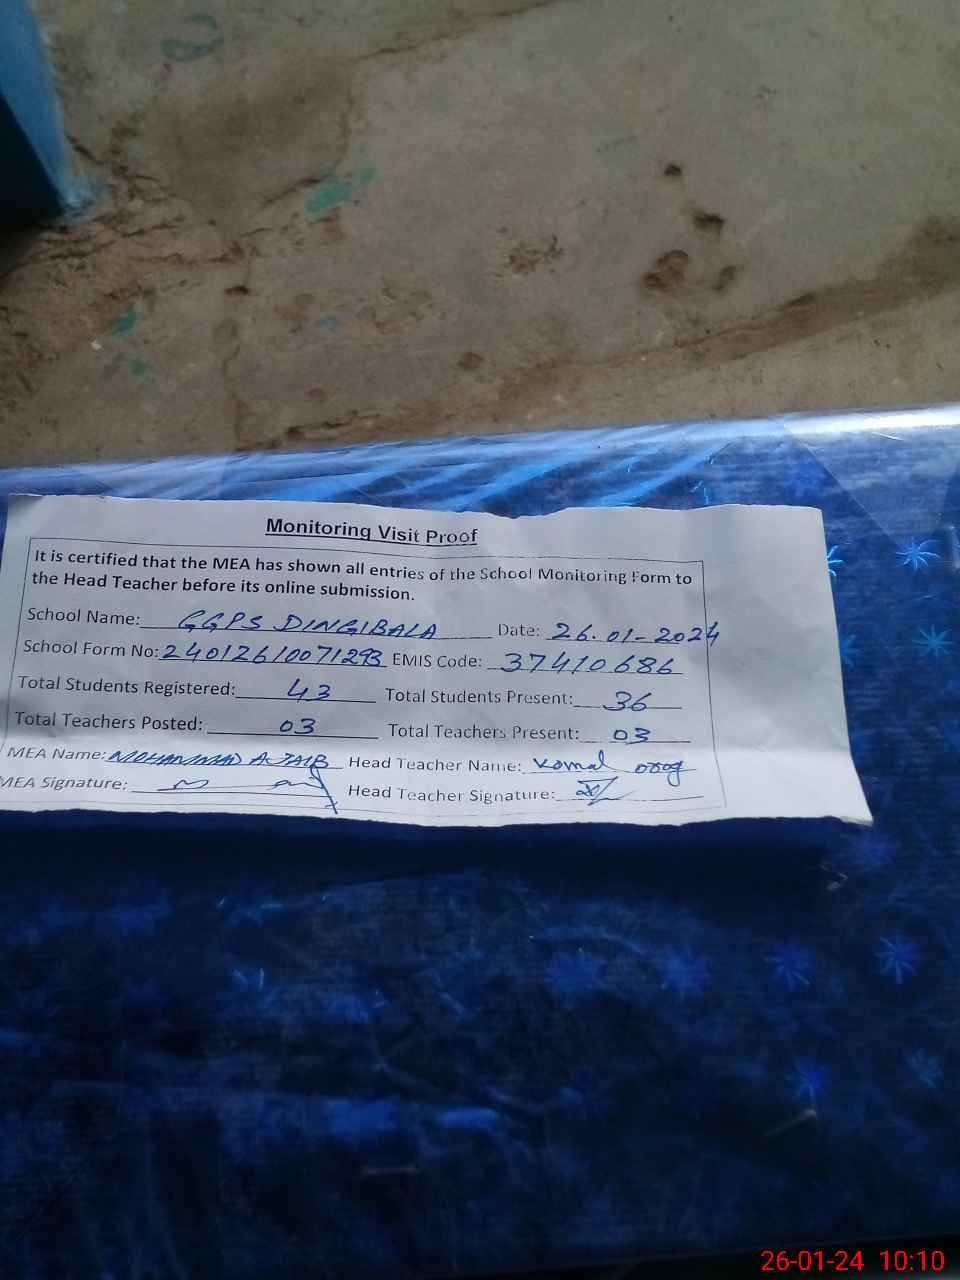 Monitoring Visit Proof
It is certified that the MEA has shown all entries of the School Monitoring Form to
the Head Teacher before its online submission.
School Name: GGPS DINGIBALA Date: 26.01-2024
School Form No: 24012610071293 EMIS Code: 37410686
Total Students Registered: 43 Total Students Present: 36
Total Teachers Posted: 03 Total Teachers Present: 03
MEA Name: MOHAMMAD AJAIB Head Teacher Name: Komal
MEA Signature: Head Teacher Signature:
26-01-24 10:10